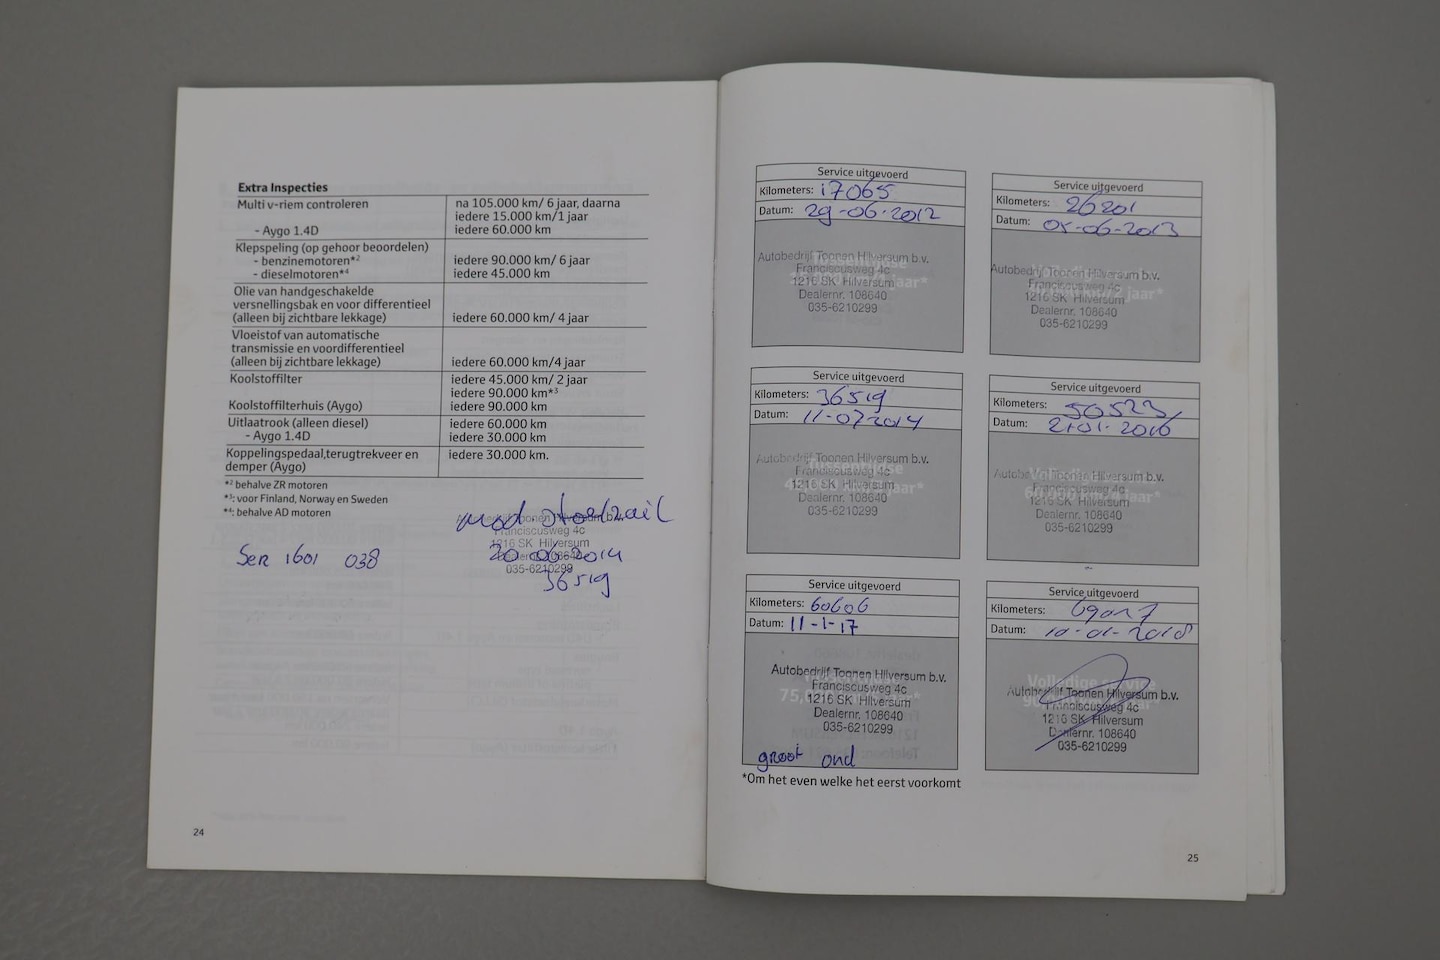 Extra Inspecties
Multi v-riem controleren na 105.000 km/ 6 jaar, daarna
iedere 15.000 km/1 jaar
- Aygo 1.4D iedere 60.000 km
Klepspeling (op gehoor beoordelen)
- benzinemotoren*2 iedere 90.000 km/ 6 jaar
- dieselmotoren*4 iedere 45.000 km
Olie van handgeschakelde
versnellingsbak en voor differentieel
(alleen bij zichtbare lekkage) iedere 60.000 km/ 4 jaar
Vloeistof van automatische
transmissie en voordifferentieel
(alleen bij zichtbare lekkage) iedere 60.000 km/4 jaar
Koolstoffilter iedere 45.000 km/ 2 jaar
iedere 90.000 km*3
Koolstoffilterhuis (Aygo) iedere 90.000 km
Uitlaatrook (alleen diesel) iedere 60.000 km
- Aygo 1.4D iedere 30.000 km
Koppelingspedaal,terugtrekveer en iedere 30.000 km.
demper (Aygo)
*2 behalve ZR motoren
*3: voor Finland, Norway en Sweden
*4: behalve AD motoren
Autobedrijf Toonen Hilversum b.v.
Franciscusweg 4c
1216 SK Hilversum
Dealernr. 108640
035-6210299
20-06-2014
36519
Ser 1601 038
24
Service uitgevoerd
Kilometers: 17065
Datum: 29-06-2012
Autobedrijf Toonen Hilversum b.v.
Franciscusweg 4c
1216 SK Hilversum
Dealernr. 108640
035-6210299
Service uitgevoerd
Kilometers: 26201
Datum: 05-06-2013
Autobedrijf Toonen Hilversum b.v.
Franciscusweg 4c
1216 SK Hilversum
Dealernr. 108640
035-6210299
Service uitgevoerd
Kilometers: 36519
Datum: 11-07-2014
Autobedrijf Toonen Hilversum b.v.
Franciscusweg 4c
1216 SK Hilversum
Dealernr. 108640
035-6210299
Service uitgevoerd
Kilometers: 50523
Datum: 21-01-2016
Autobedrijf Toonen Hilversum b.v.
Franciscusweg 4c
1216 SK Hilversum
Dealernr. 108640
035-6210299
Service uitgevoerd
Kilometers: 60606
Datum: 11-1-17
Autobedrijf Toonen Hilversum b.v.
Franciscusweg 4c
1216 SK Hilversum
Dealernr. 108640
035-6210299
groot ond
Service uitgevoerd
Kilometers: 69017
Datum: 10-01-2018
Volledige service
Autobedrijf Toonen Hilversum b.v.
Franciscusweg 4c
1216 SK Hilversum
Dealernr. 108640
035-6210299
*Om het even welke het eerst voorkomt
25